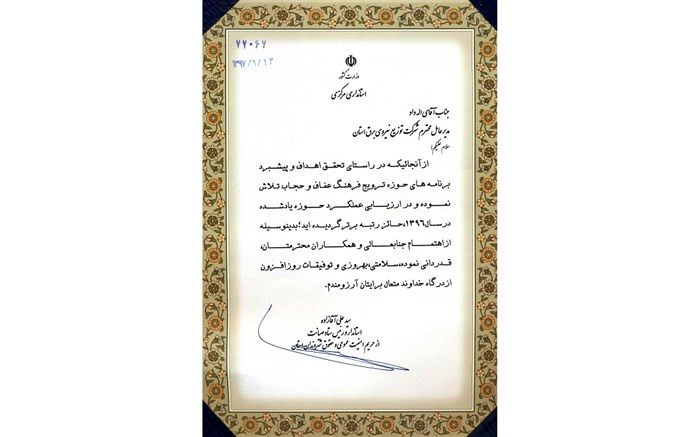 ۷۷۰۶۷
۱۳۹۷/۹/۱۲
وزارت کشور
استانداری مرکزی
جناب آقای اله داد
مدیرعامل محترم شرکت توزیع نیروی برق استان
سلام علیکم؛
از آنجائیکه در راستای تحقق اهداف و پیشبرد
برنامه های حوزه ترویج فرهنگ عفاف و حجاب تلاش
نموده و در ارزیابی عملکرد حوزه یادشده
در سال۱۳۹۶، حائز رتبه برتر گردیده اید؛ بدینوسیله
از اهتمام جنابعالی و همکاران محترمتان،
قدردانی نموده، سلامتی، بهروزی و توفیقات روزافزون
از درگاه خداوند متعال برایتان آرزومندم.
سید علی آقازاده
استاندار و رئیس ستاد صیانت
از حریم امنیت عمومی و حقوق شهروندان استان